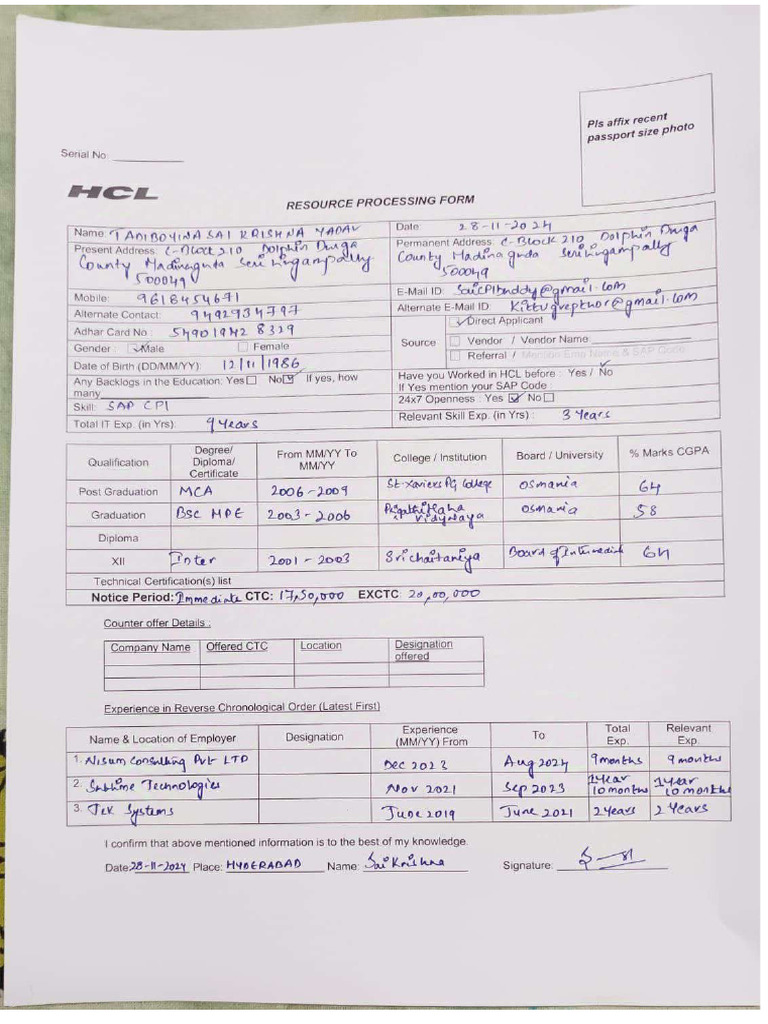 Pls affix recent
passport size photo
Serial No: ____________
HCL
RESOURCE PROCESSING FORM
Name: TADIBOYINA SAI KRISHNA YADAV
Date: 28-11-2024
Present Address: C-Block 210 Dolphin Durga
County Madinaguda Serilingampally
500049
Permanent Address: C-Block 210 Dolphin Durga
County Madinaguda Serilingampally
500049
Mobile: 9618454671
E-Mail ID: SaiCPIbuddy@gmail.com
Alternate Contact: 9492934797
Alternate E-Mail ID:
Adhar Card No: 549019428329
Source
Direct Applicant
Vendor / Vendor Name:
Referral / Mention Emp Name & SAP Code
Gender: Male Female
Date of Birth (DD/MM/YY): 12/11/1986
Have you Worked in HCL before : Yes / No
If Yes mention your SAP Code :
Any Backlogs in the Education: Yes No If yes, how
many
24x7 Openness : Yes No
Skill: SAP CPI
Relevant Skill Exp. (in Yrs) : 3 Years
Total IT Exp. (in Yrs): 9 Years
Qualification Degree/ Diploma/ Certificate From MM/YY To MM/YY College / Institution Board / University % Marks CGPA
Post Graduation MCA 2006-2009 St. Xaviers PG College Osmania 64
Graduation BSC MPE 2003-2006 Osmania 58
Diploma
XII Inter 2001-2003 Srichaitaniya Board of Intermediate 64
Technical Certification(s) list
Notice Period: Immediate CTC: 17,50,000 EXCTC: 20,00,000
Counter offer Details :
Company Name Offered CTC Location Designation offered
Experience in Reverse Chronological Order (Latest First)
Name & Location of Employer Designation Experience (MM/YY) From To Total Exp. Relevant Exp.
1. Nisum Consulting Pvt LTD Dec 2023 Aug 2024 9 months 9 months
2. Technologies Nov 2021 Sep 2023 1 year 10 months 1 year 10 months
3. Tek Systems June 2019 June 2021 2 Years 2 Years
I confirm that above mentioned information is to the best of my knowledge.
Date: 28-11-2024 Place: HYDERABAD Name: Sai Krishna Signature: